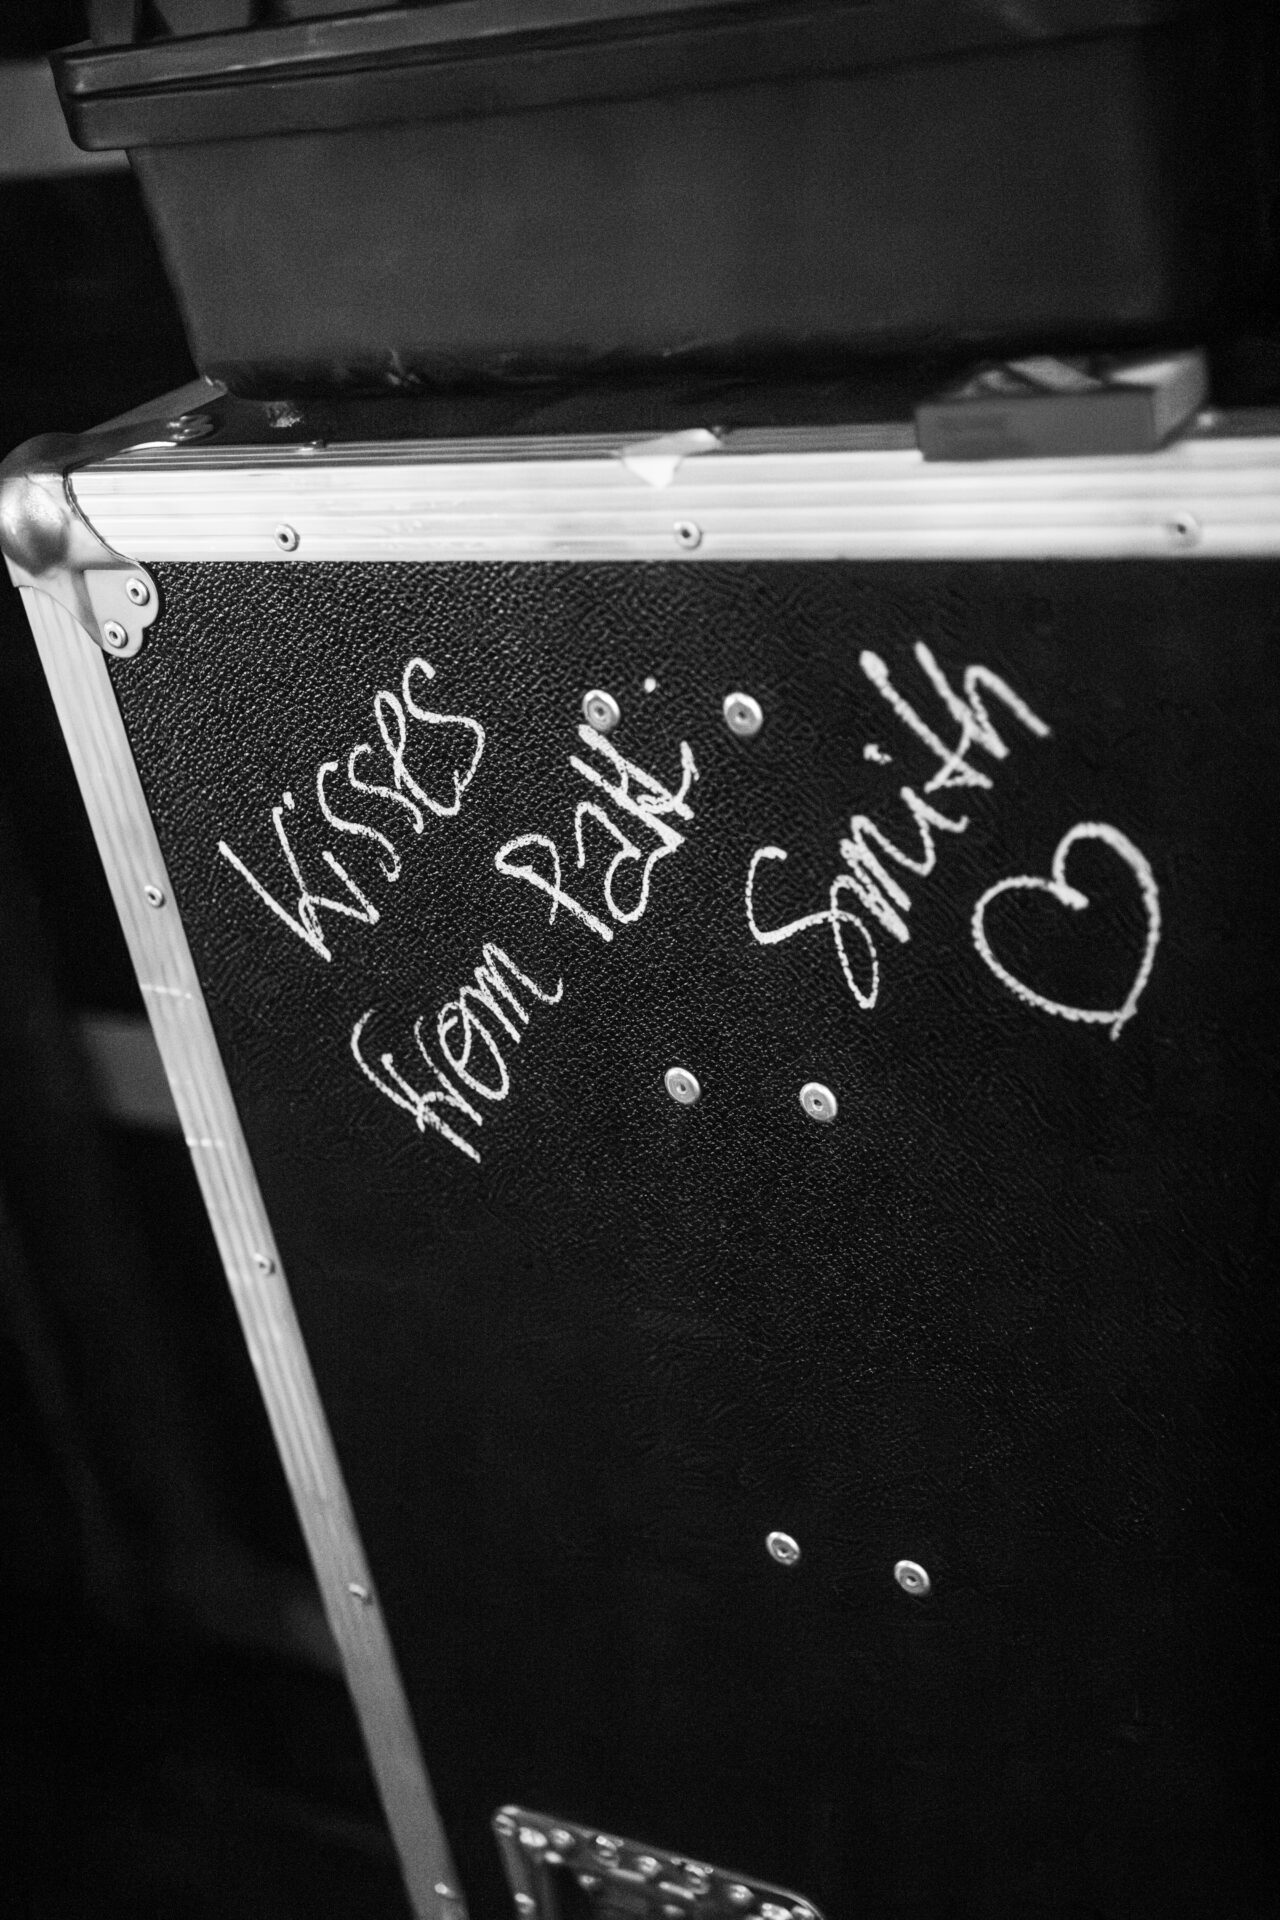 Kisses
from Patti
Smith